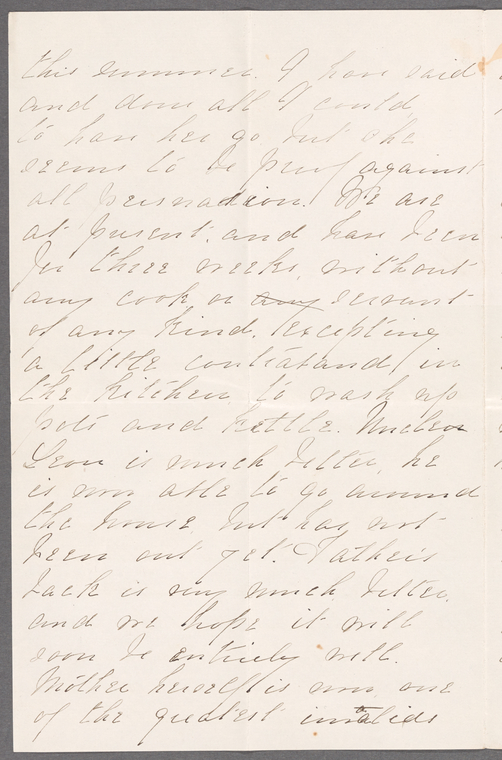 this summer. I have said
and done all I could
to have her go but she
seems to be proof against
all persuasion. We are
at present, and have been
for three weeks, without
any cook or any servant
of any kind. Excepting
a little contraband in
the kitchen to wash up
pots and kettle. Uncle
Leon is much better, he
is now able to go around
the house but has not
been out yet. Father's
back is very much better
and we hope it will
soon be entirely well.
Mother herself is now one
of the greatest invalids